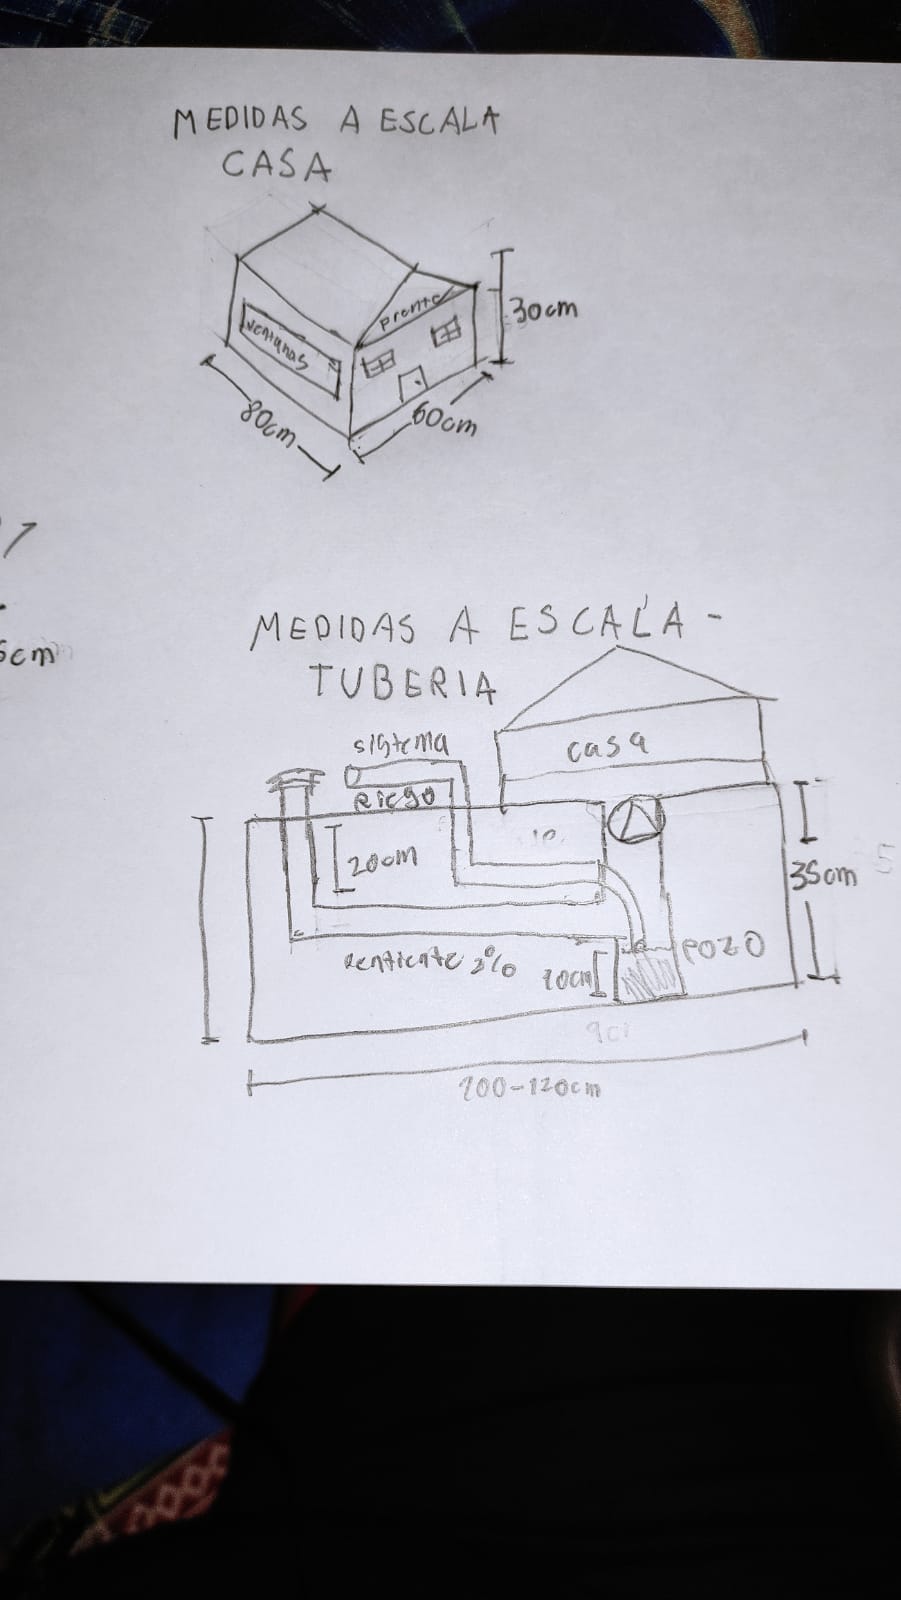 MEDIDAS A ESCALA
CASA
Frente
ventanas
30cm
80cm
60cm
5cm
MEDIDAS A ESCALA -
TUBERIA
sistema
Riego
casa
20cm
35cm
Pendiente 2%
10cm
POZO
100-120cm